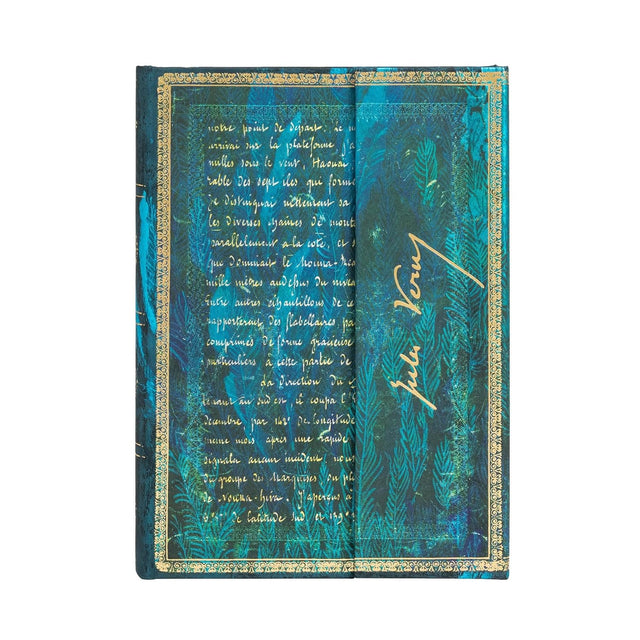 notre point de départ. Le m
arrivai sur la plateforme j'a
milles sous le vent, Haouaï
rable des sept iles qui forme
Je distinguai nettement sa
les diverses chaines de mont
parallelement a la cote, et s
que dominait le Mouna-Rea
mille mètres audessus du nivea
Entre autres échantillons de ce
rapporterent des flabellaires pa
comprimés de forme gracieuse
particuliers à cette partie de
La direction du
tenant au sud est il coupa l'
décembre par 142° de longitude
meme mois après une rapide
signala aucun incident nous
du groupe des Marquises
de Nouka-hiva. J'aperçus à
de latitude sud et 139°
Jules Verne